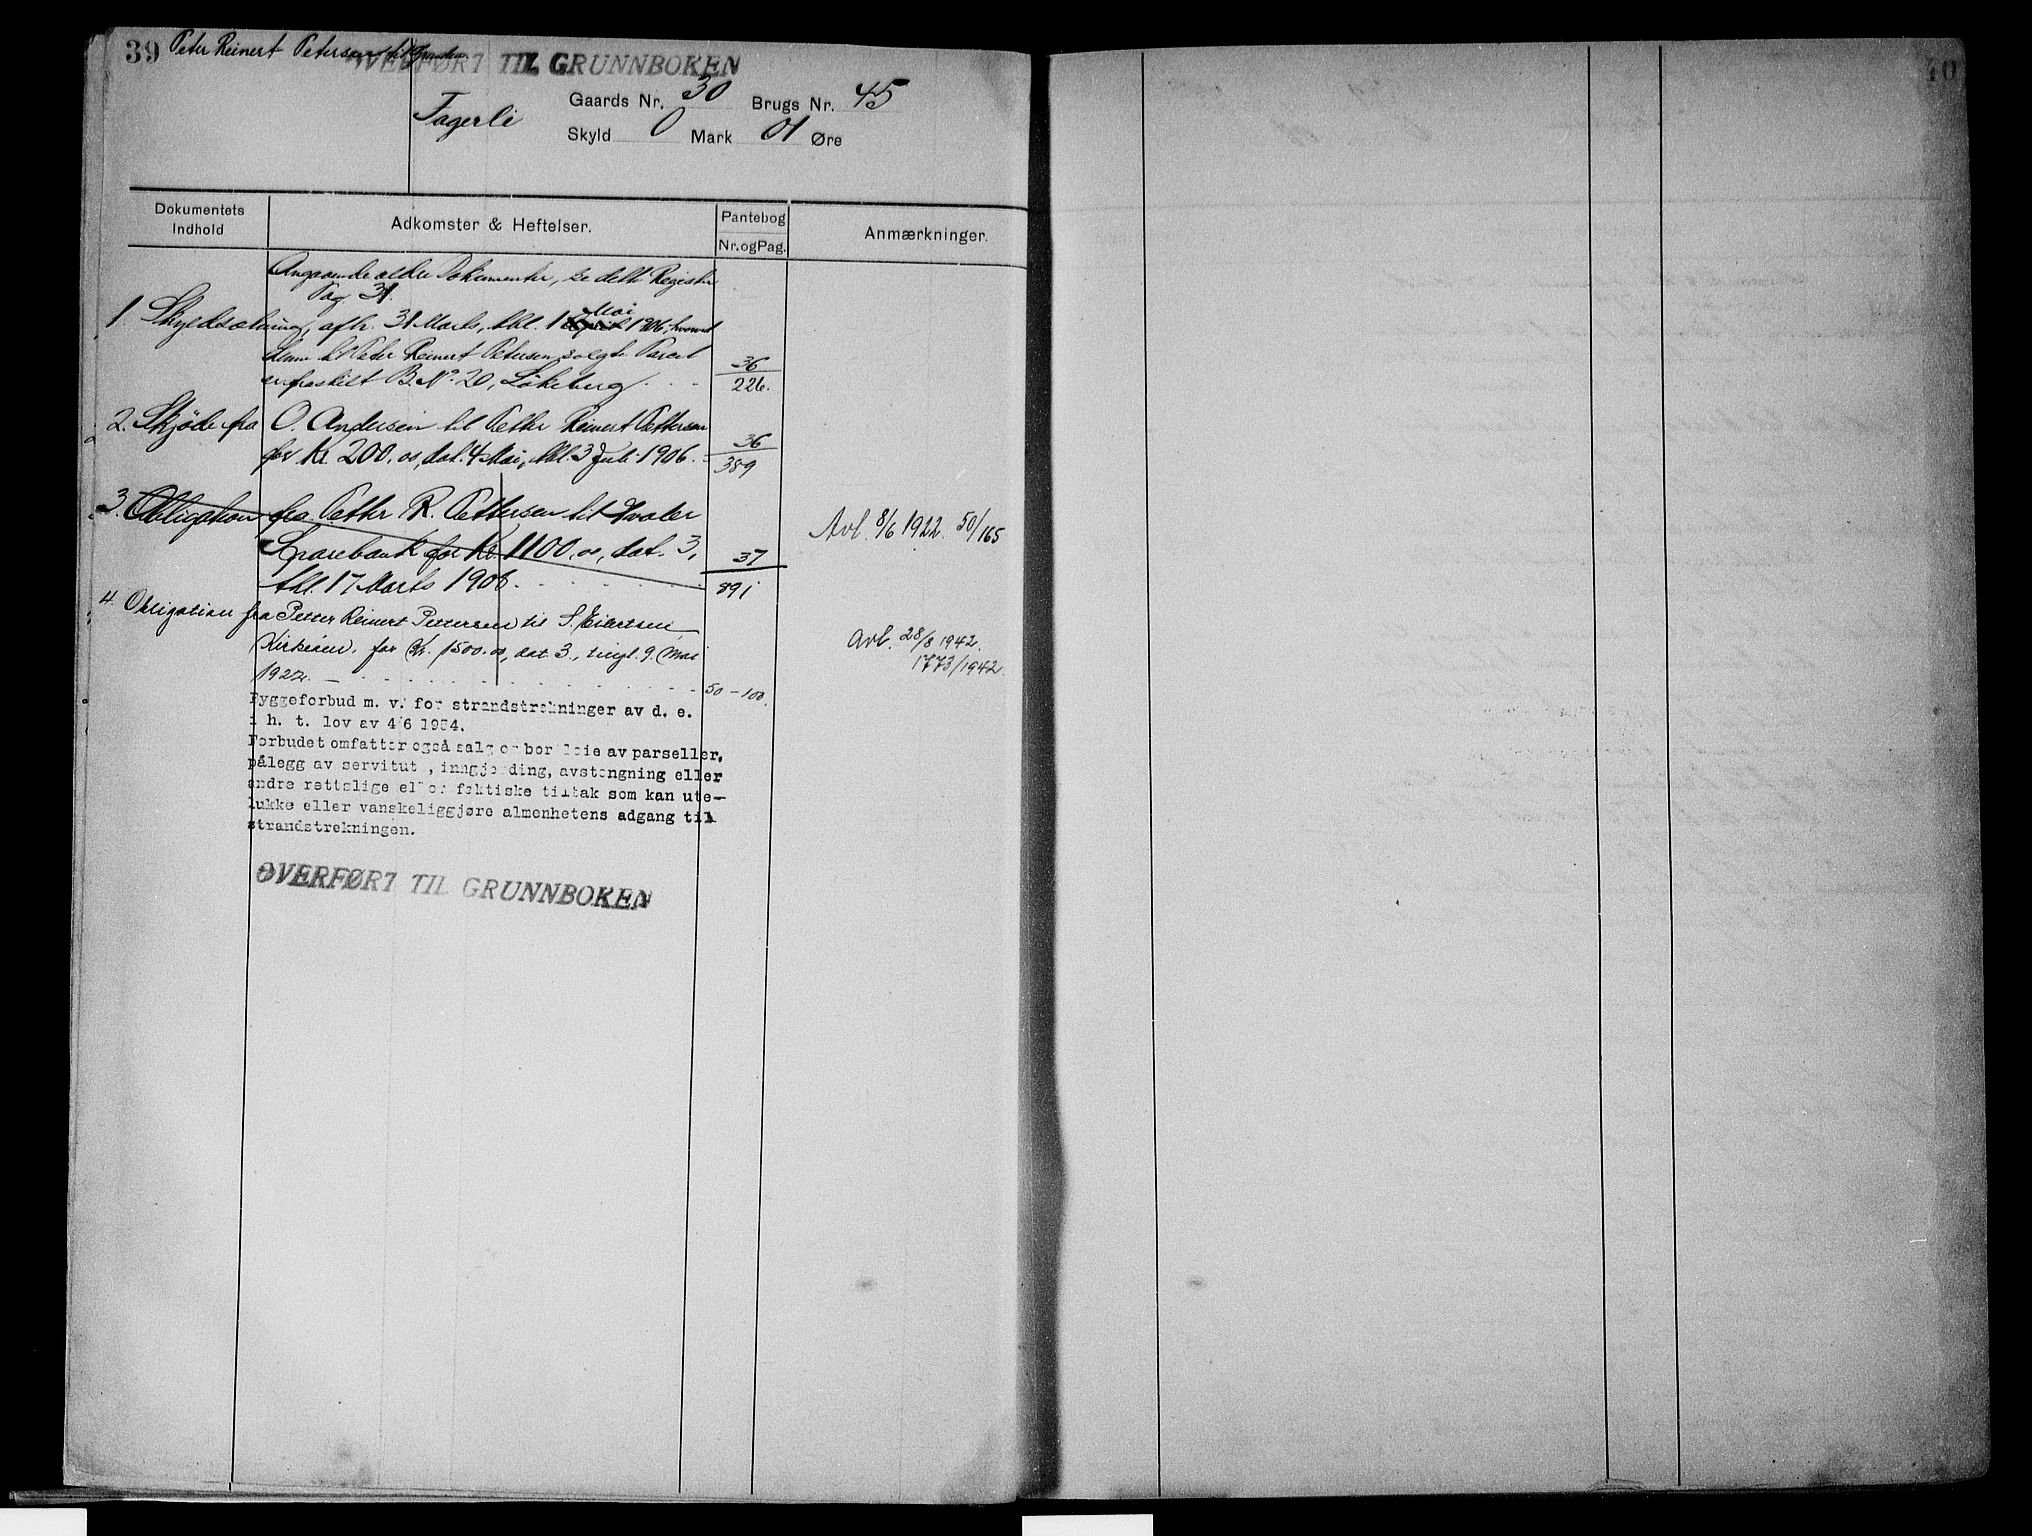 39 Peter Reinert Petersen
OVERFØRT TIL GRUNNBOKEN
Fagerli
Gaards Nr. 30 Brugs Nr. 45
Skyld 0 Mark 01 Øre
Dokumentets
Indhold
Adkomster & Heftelser.
Pantebog
Nr. og Pag.
Anmærkninger.
Angaaende ældre Dokumenter, se dette Register
Pag. 31.
1. Skyldsætning, afh. 31 Marts, thl. 1 April Mai 1906, hvorved
denne til Peter Reinert Petersen solgte Parcel
er fraskilt B. No. 20, Løkeberg
36
226.
2. Skjøde fra O. Andersen til Petter Reinert Pettersen
for Kr. 200.00, dat. 4 Mai, thl. 3 Juli 1906.
36
389
3. Obligation fra Petter R. Pettersen til Hvaler
Sparebank for Kr. 1100.00, dat. 3,
thl. 17 Marts 1908.
37
891
Avl. 8/6 1922. 50/165
4. Obligation fra Petter Reinert Pettersen til S. Eilertsen
Kirkøen, for Kr. 1500.00, dat. 3., tingl. 9. Mai
1922.
50-100.
Avl. 28/8 1942.
1773/1942.
Byggeforbud m. v. for strandstrekninger av d. e.
i h. t. lov av 4/6 1954.
Forbudet omfatter også salg og bortleie av parseller,
pålegg av servitut, inngjerding, avstengning eller
andre rettslige eller faktiske tiltak som kan ute-
lukke eller vanskeliggjøre almenhetens adgang til
strandstrekningen.
OVERFØRT TIL GRUNNBOKEN
40